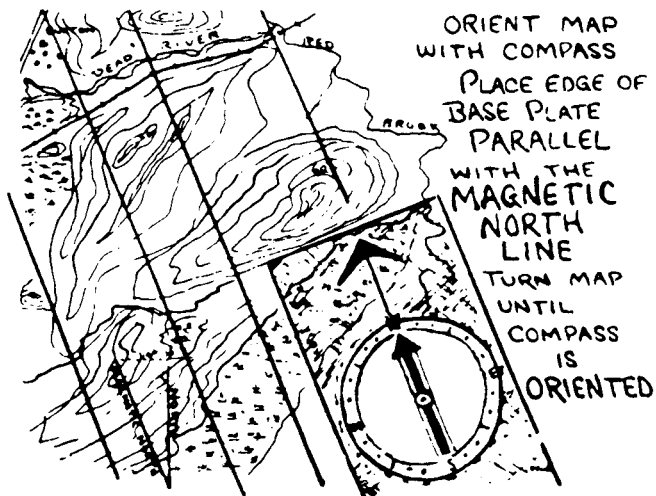 DEAD RIVER
RED
ORIENT MAP
WITH COMPASS
PLACE EDGE OF
BASE PLATE
PARALLEL
WITH THE
MAGNETIC
NORTH
LINE
TURN MAP
UNTIL
COMPASS
IS
ORIENTED